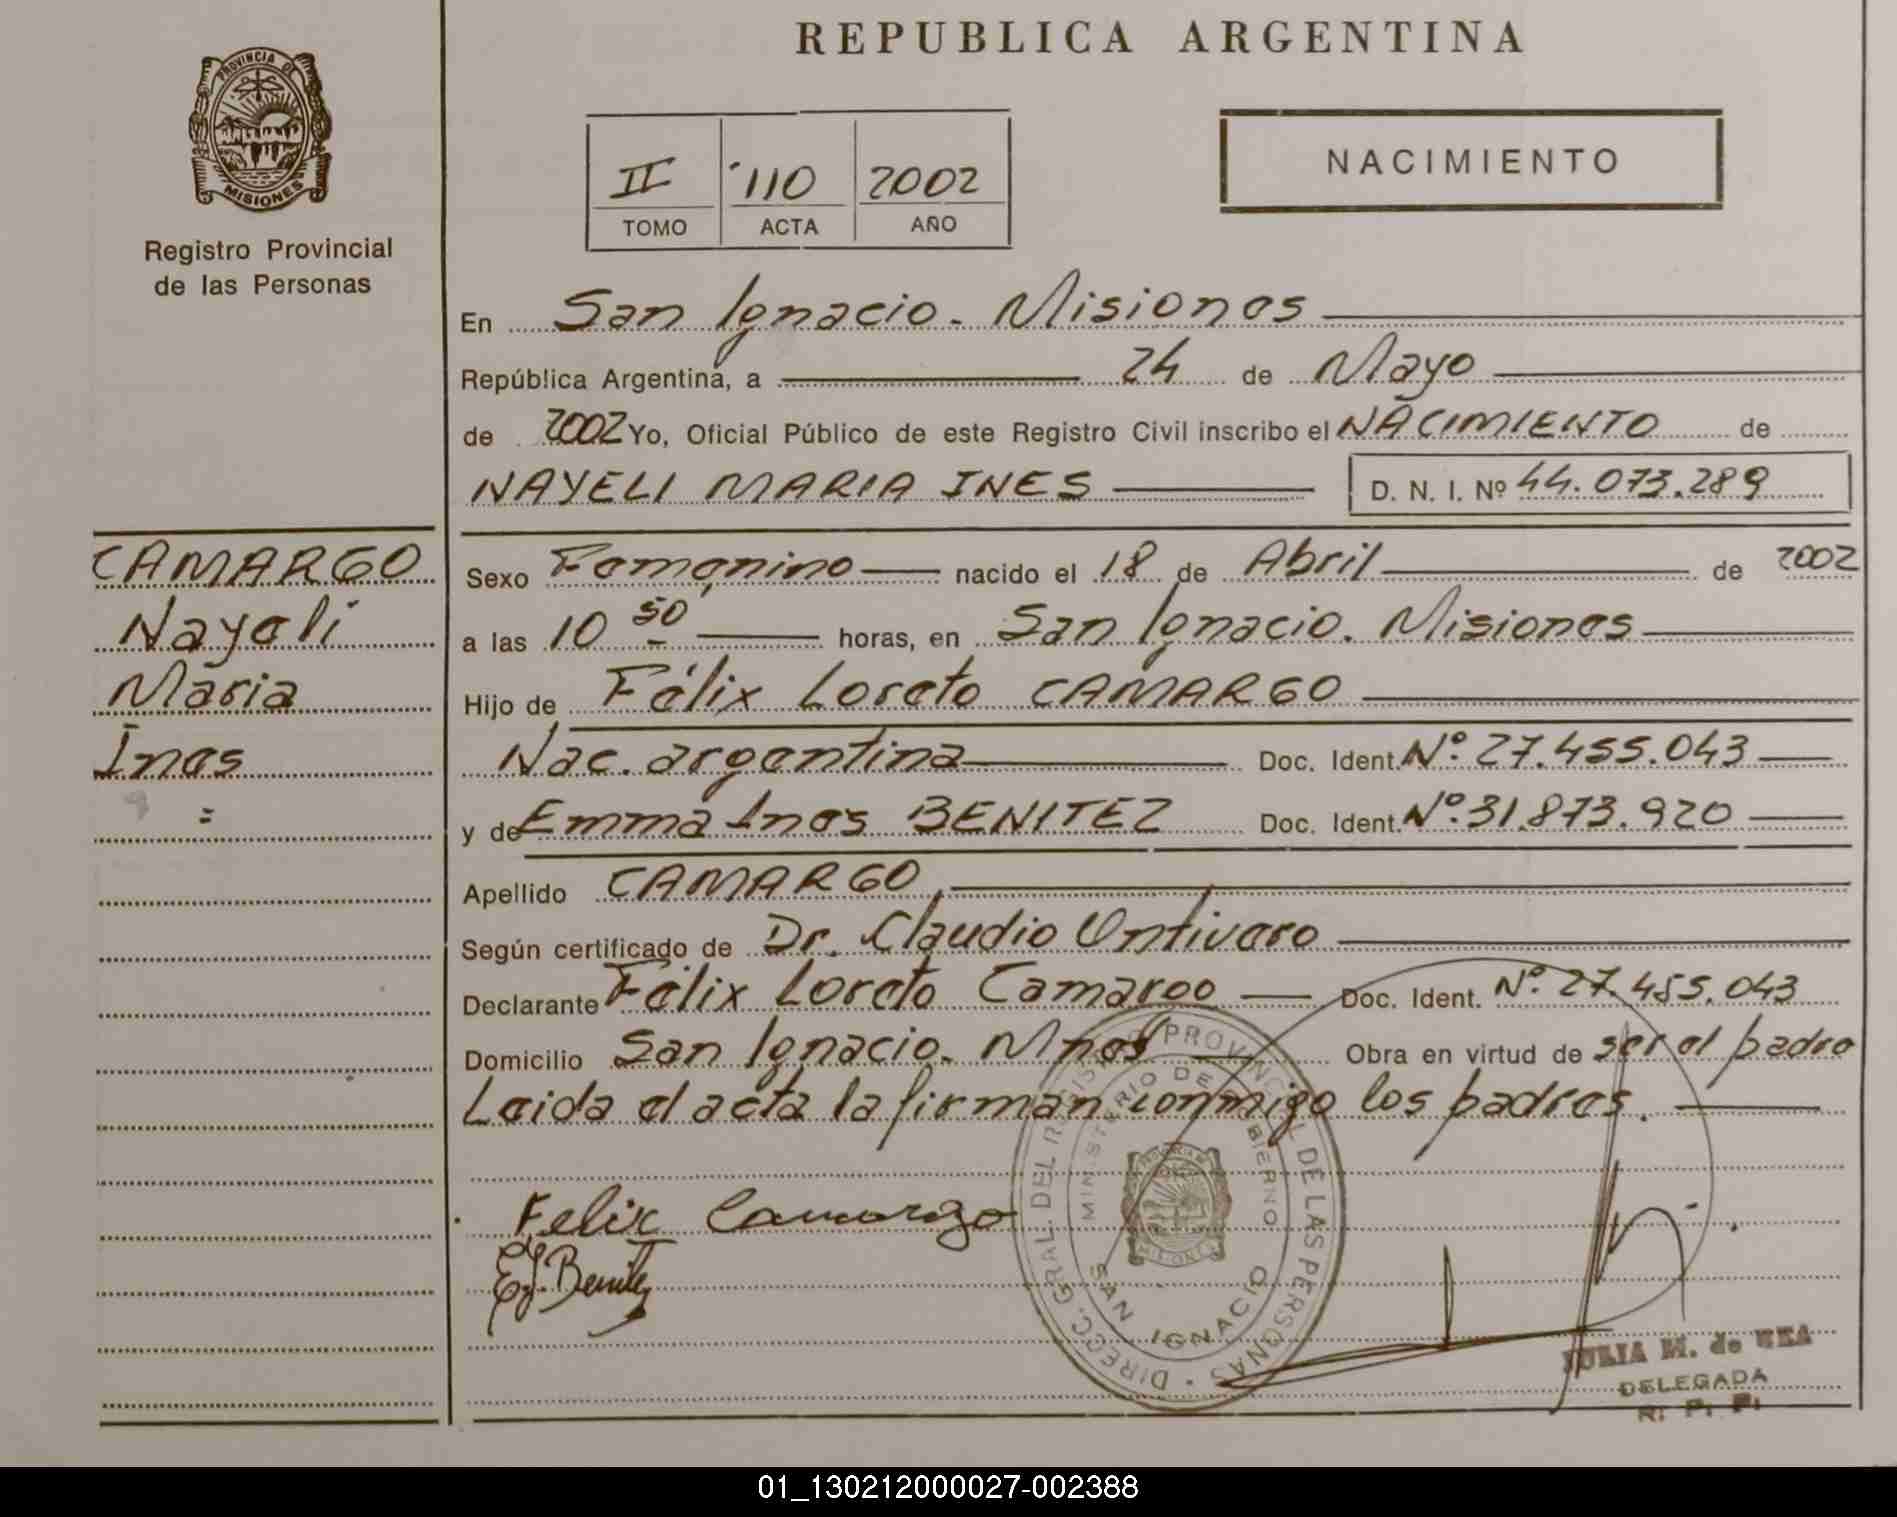 REPUBLICA ARGENTINA
PROVINCIA DE
MISIONES
Registro Provincial
de las Personas
II 110 2002
TOMO ACTA AÑO
NACIMIENTO
En San Ignacio. Misiones
República Argentina, a 24 de Mayo
de 2002 Yo, Oficial Público de este Registro Civil inscribo el NACIMIENTO de
NAYELI MARIA INES D. N. I. Nº 44.073.289
CAMARGO
Nayeli
Maria
Ines
=
Sexo Femenino nacido el 18 de Abril de 2002
a las 10 50 horas, en San Ignacio. Misiones
Hijo de Félix Loreto CAMARGO
Nac. argentina Doc. Ident. Nº 27.455.043
y de Emma Ines BENITEZ Doc. Ident. Nº 31.873.920
Apellido CAMARGO
Según certificado de Dr. Claudio Ontivero
Declarante Félix Loreto Camargo Doc. Ident. Nº 27.455.043
Domicilio San Ignacio. Mnes Obra en virtud de ser el padre
Leida el acta la firman conmigo los padres.
Felix Camargo
E.I. Benitez
DIRECC. GRAL. DEL REGISTRO PROVINCIAL DE LAS PERSONAS
MINISTERIO DE GOBIERNO
PROVINCIA DE
MISIONES
SAN IGNACIO
JULIA M. de
DELEGADA
R. P. P.
01_130212000027-002388